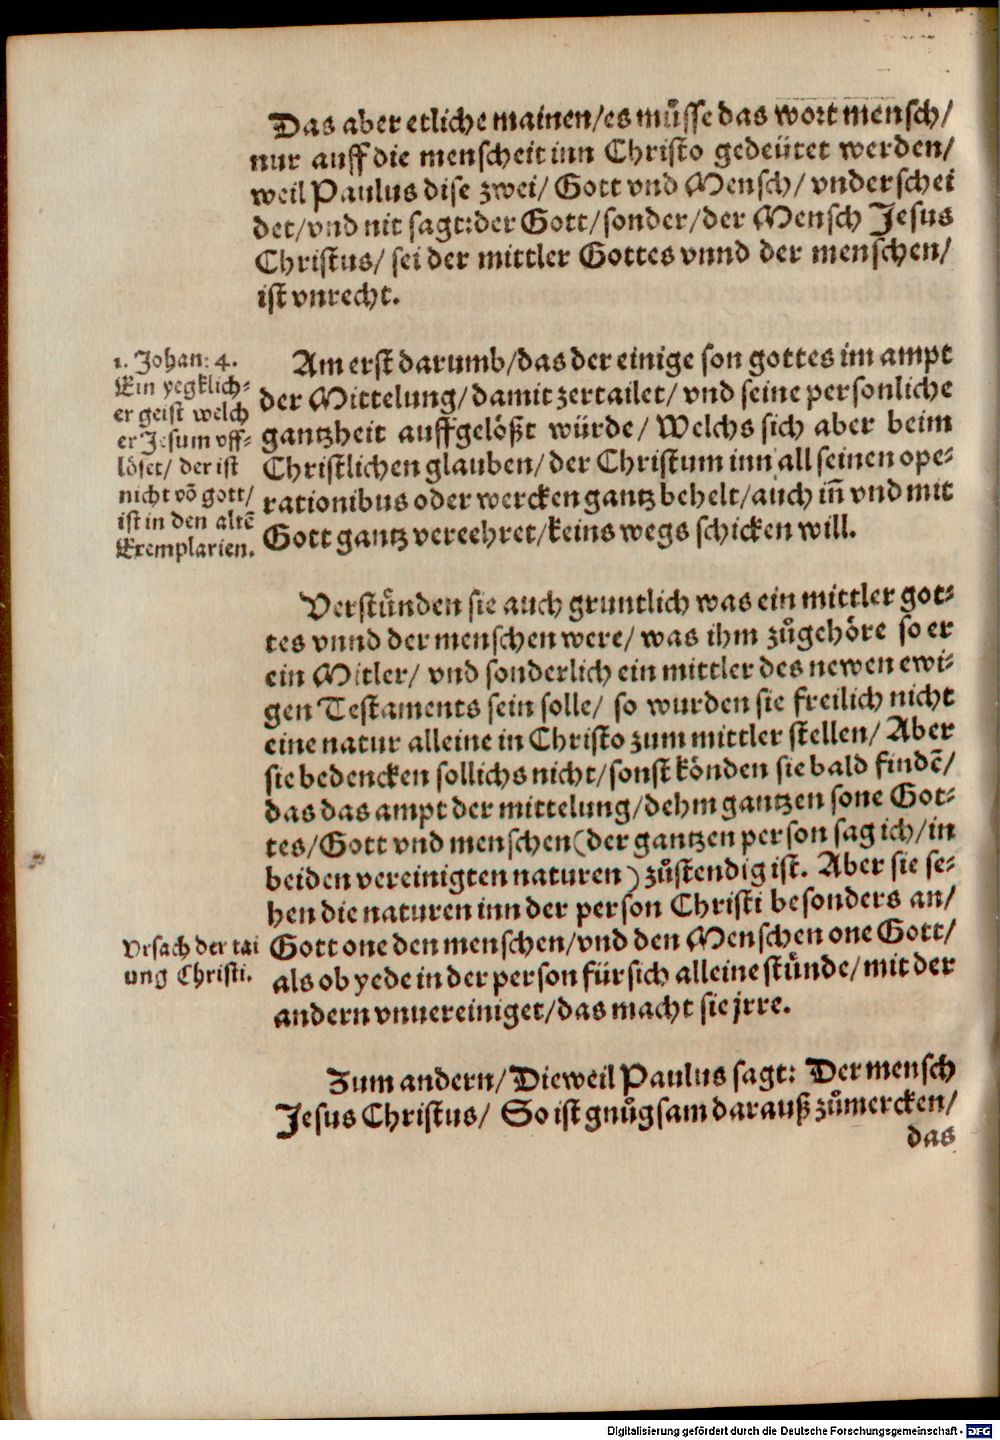 Das aber etliche mainen/es müsse das wort mensch/
nur auff die menscheit inn Christo gedeütet werden/
weil Paulus dise zwei/ Gott vnd Mensch/ vnderschei
det/vnd nit sagt:der Gott/sonder/der Mensch Jesus
Christus/ sei der mittler Gottes vnnd der menschen/
ist vnrecht.
1. Johan: 4.
Ein yegklich-
er geist welch
er Jesum vff-
löset/ der ist
nicht võ gott/
ist in den altẽ
Exemplarien.
Am erst darumb/das der einige son gottes im ampt
der Mittelung/damit zertailet/ vnd seine personliche
gantzheit auffgelößt würde/ Welchs sich aber beim
Christlichen glauben/der Christum inn all seinen ope-
rationibus oder wercken gantz behelt/auch iñ vnd mit
Gott gantz vereehret/keins wegs schicken will.
Verstünden sie auch gruntlich was ein mittler got-
tes vnnd der menschen were/ was ihm zůgehöre so er
ein Mitler/ vnd sonderlich ein mittler des newen ewi-
gen Testaments sein solle/ so wurden sie freilich nicht
eine natur alleine in Christo zum mittler stellen/ Aber
sie bedencken sollichs nicht/sonst könden sie bald findẽ/
das das ampt der mittelung/dehm gantzen sone Got-
tes/Gott vnd menschen(der gantzen person sag ich/in
beiden vereinigten naturen) zůstendig ist. Aber sie se-
hen die naturen inn der person Christi besonders an/
Vrsach der tai
ung Christi.
Gott one den menschen/vnd den Menschen one Gott/
als ob yede in der person für sich alleine stünde/mit der
andern vnuereiniget/das macht sie jrre.
Zum andern/Dieweil Paulus sagt: Der mensch
Jesus Christus/ So ist gnůgsam darauß zůmercken/
das
Digitalisierung gefördert durch die Deutsche Forschungsgemeinschaft - DFG